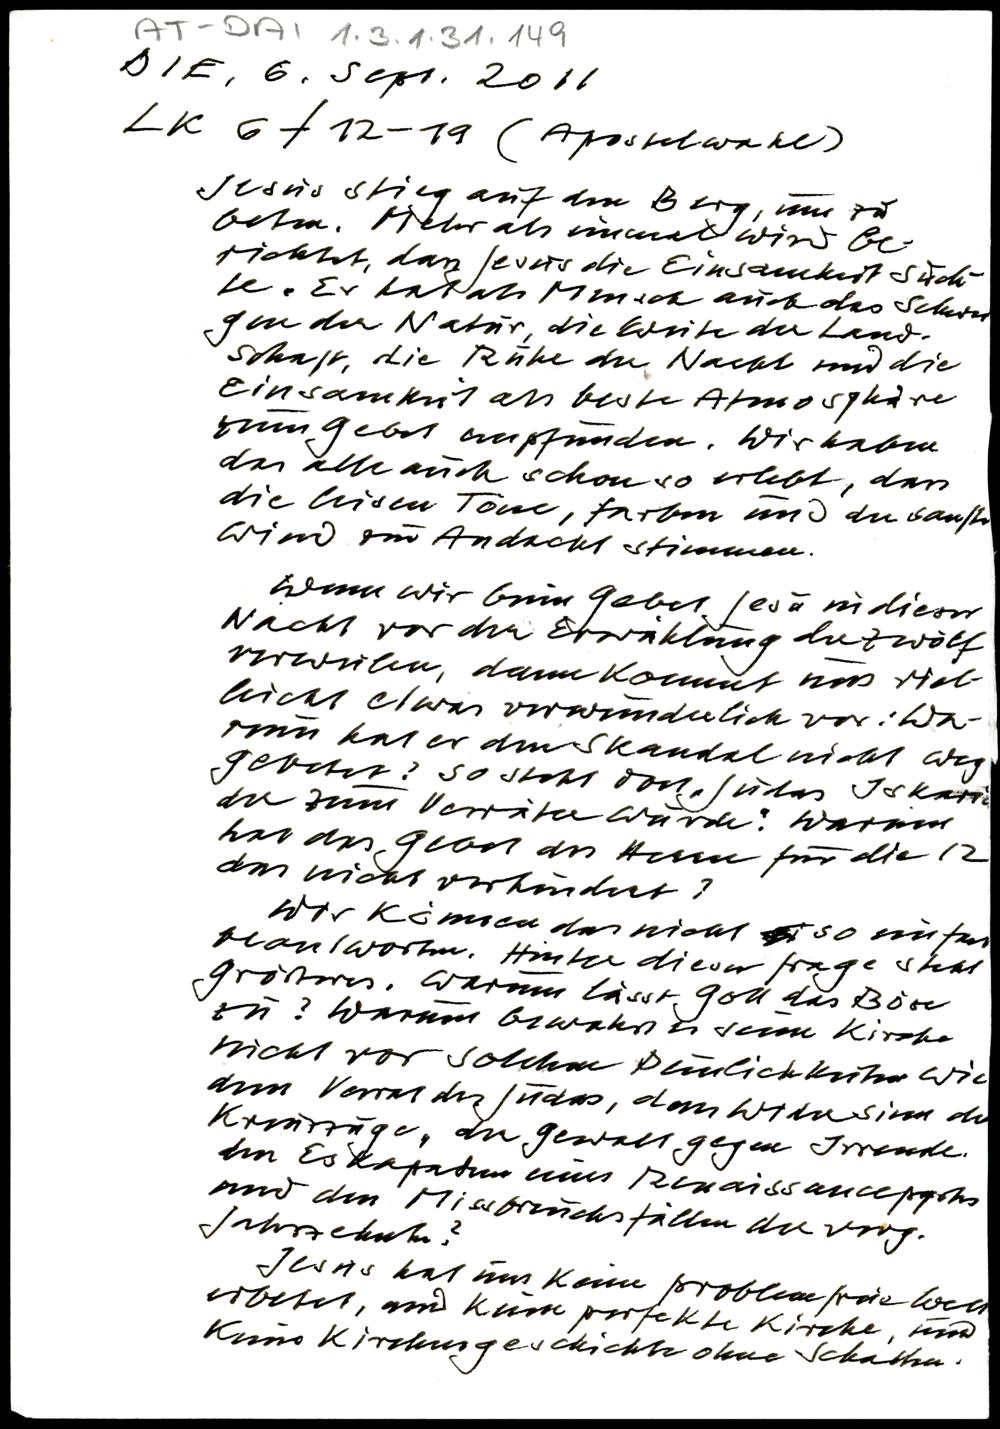 AT-DAI 1.3.1.31.149
DIE, 6. Sept. 2011
LK 6/12-19 (Apostelwahl)
Jesus stieg auf den Berg, um zu
beten. Mehr als einmal wird be-
richtet, dass Jesus die Einsamkeit such-
te. Er hat als Mensch auch das Schwei
gen der Natur, die Weite der Land-
schaft, die Ruhe der Nacht und die
Einsamkeit als beste Atmosphäre
zum Gebet empfunden. Wir haben
das alle auch schon so erlebt, dass
die leisen Töne, Farben und der sanfte
Wind zur Andacht stimmen.
Wenn wir beim Gebet Jesu in dieser
Nacht vor der Erwählung der Zwölf
verweilen, dann kommt uns viel-
leicht etwas verwunderlich vor: Wa-
rum hat er den Skandal nicht weg
gebetet? So steht dort "Judas Iskario
der zum Verräter wurde". Warum
hat das Gebet des Herrn für die 12
das nicht verhindert?
Wir können das nicht so einfach
beantworten. Hinter dieser Frage steht
Größeres. Warum lässt Gott das Böse
zu? Warum bewahrt er seine Kirche
nicht vor solchen Peinlichkeiten wie
dem Verrat des Judas, dem Widersinn der
Kreuzzüge, der Gewalt gegen Irrende.
den Eskapaden eines Renaissancepapstes
und den Missbrauchsfällen der verg.
Jahrzehnte?
Jesus hat uns keine problemfreie Welt
erbetet, und keine perfekte Kirche, und
keine Kirchengeschichte ohne Schatten.